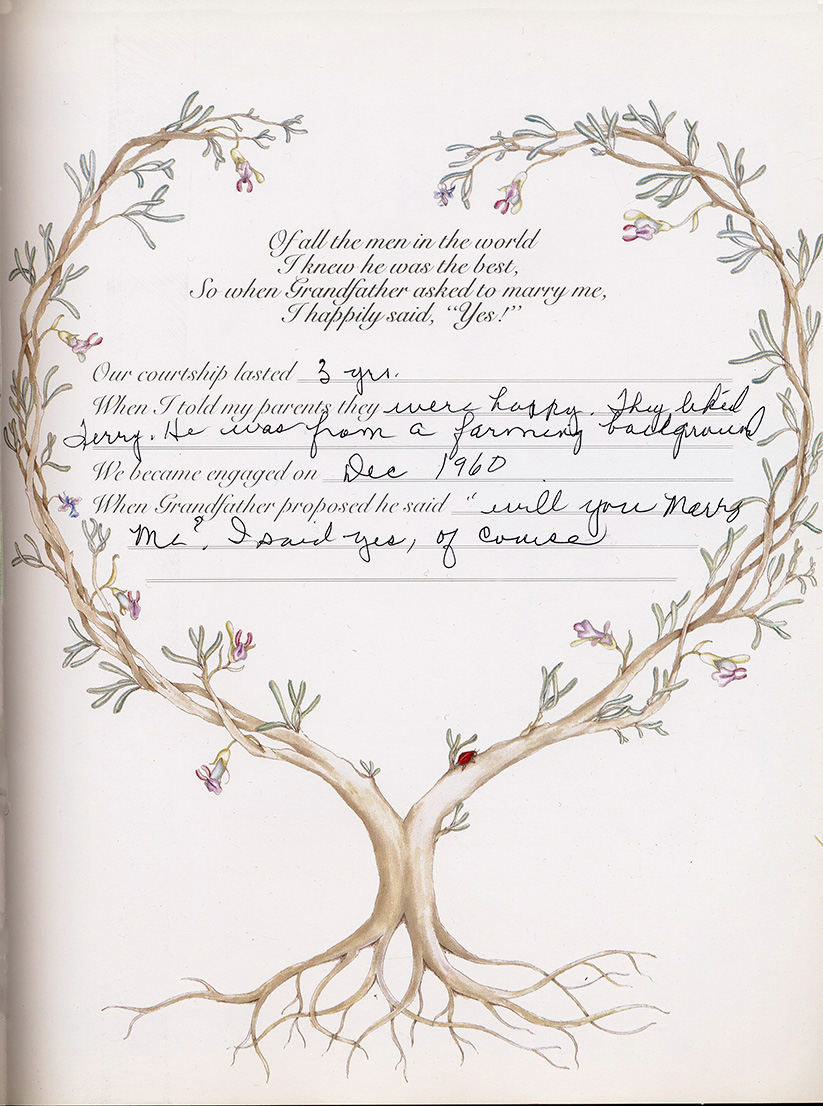 Of all the men in the world
I knew he was the best,
So when Grandfather asked to marry me,
I happily said, “Yes!”
Our courtship lasted 3 yrs.
When I told my parents they were happy. They liked
Jerry. He was from a farming background
We became engaged on Dec 1960
When Grandfather proposed he said "will you Marry
Me?. I said yes, of course